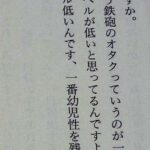 すか。
う鉄砲のオタクっていうのが一
ベルが低いと思ってるんですよ
ル低いんです、一番幼児性を残